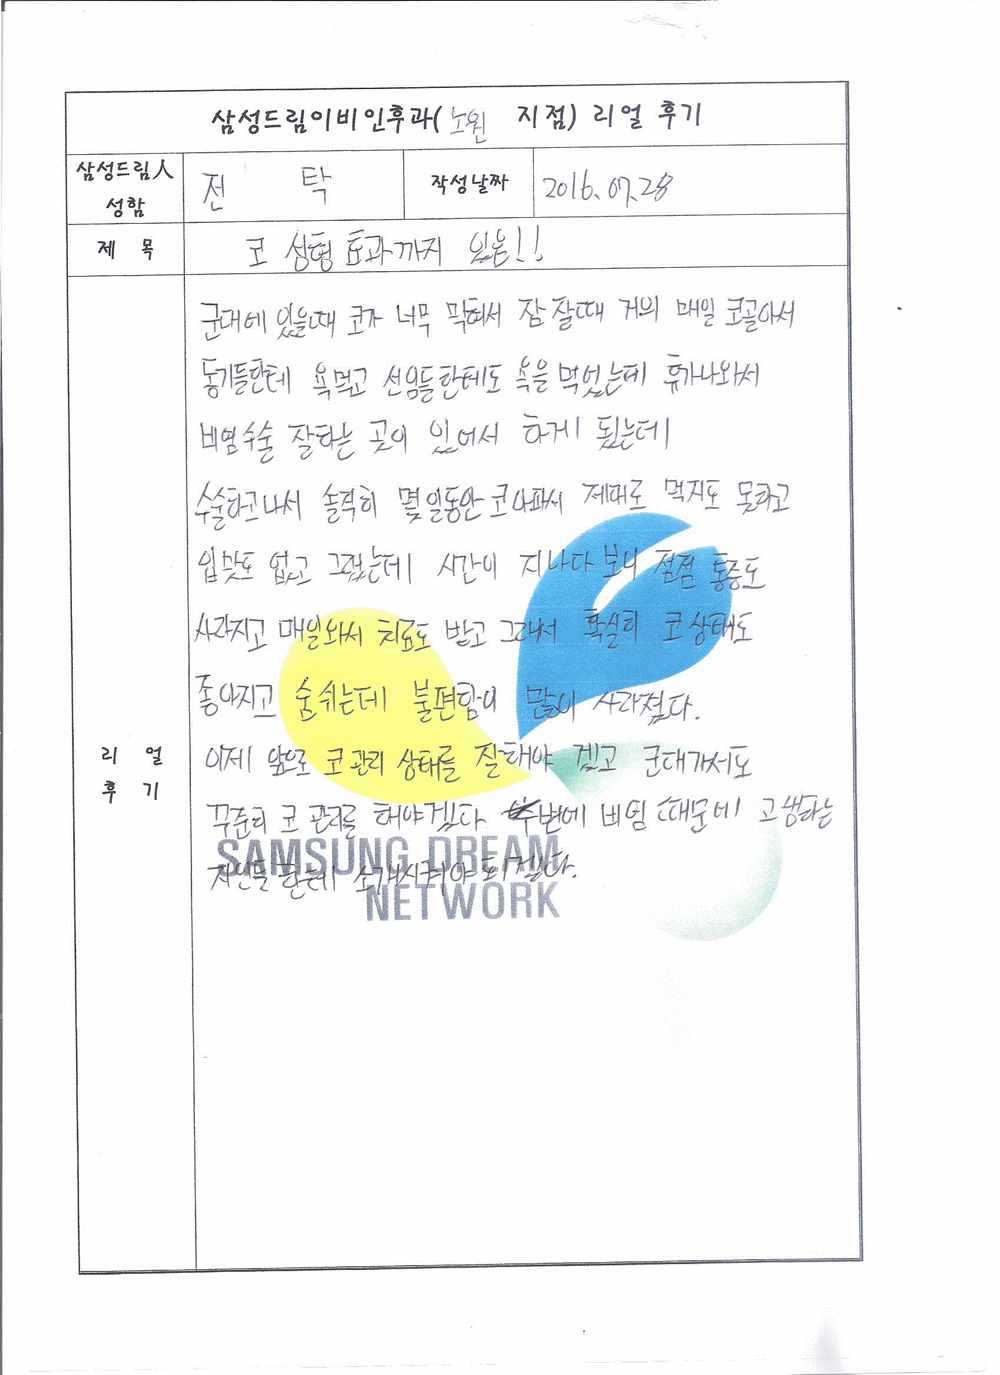 삼성드림이비인후과(노원 지점) 리얼 후기
삼성드림人 성함
전 탁
작성날짜
2016.07.28
제 목
코 성형 효과까지 있음!!
리 얼 후 기
군대에 있을때 코가 너무 막혀서 잠 잘때 거의 매일 코골아서
동기들한테 욕먹고 선임들한테도 욕을 먹었는데 휴가나와서
비염수술 잘하는 곳이 있어서 하게 됬는데
수술하고나서 솔직히 몇일동안 코아파서 제대로 먹지도 못하고
입맛도 없고 그랬는데 시간이 지나다 보니 점점 통증도
사라지고 매일와서 치료도 받고 그래서 확실히 코 상태도
좋아지고 숨쉬는데 불편함이 많이 사라졌다.
이제 앞으로 코관리 상태를 잘해야 겠고 군대가서도
꾸준히 코 관리를 해야겠다. 주변에 비염 때문에 고생하는
지인들 한테 소개시켜야 되겠다.
SAMSUNG DREAM
NETWORK